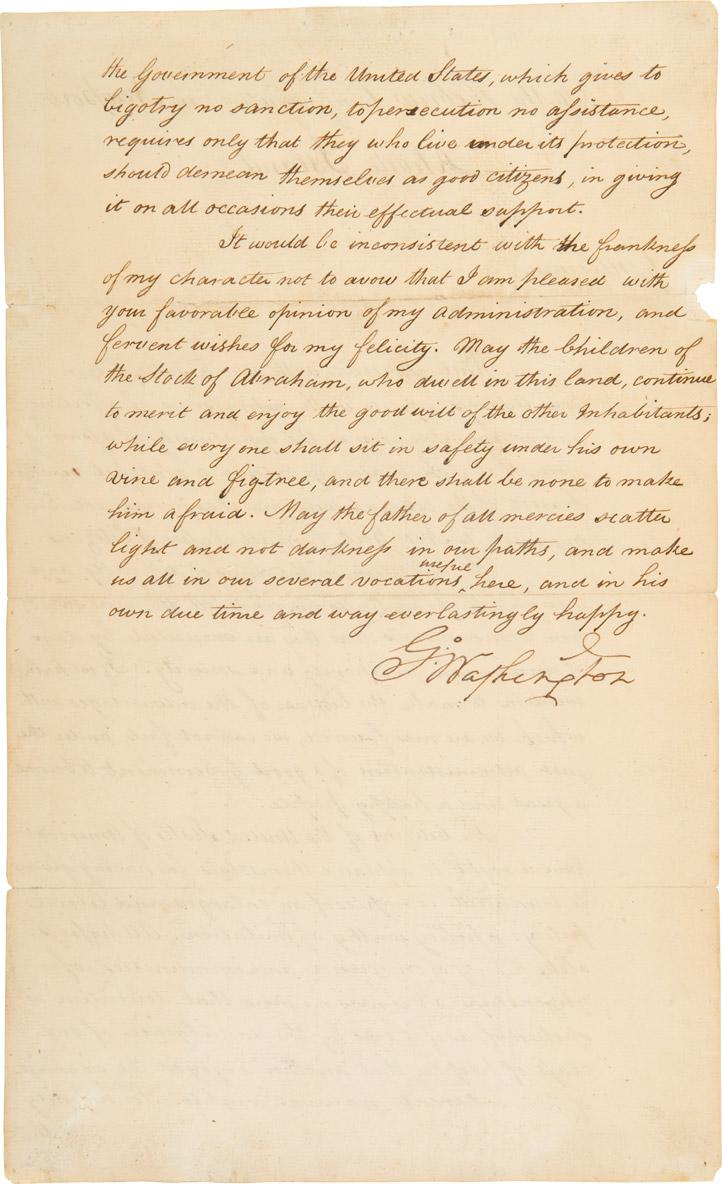 the Government of the United States, which gives to
bigotry no sanction, to persecution no assistance,
requires only that they who live under its protection,
should demean themselves as good citizens, in giving
it on all occasions their effectual support.
It would be inconsistent with the frankness
of my character not to avow that I am pleased with
your favorable opinion of my administration, and
fervent wishes for my felicity. May the Children of
the Stock of Abraham, who dwell in this land, continue
to merit and enjoy the good will of the other Inhabitants;
while every one shall sit in safety under his own
vine and figtree, and there shall be none to make
him afraid. May the father of all mercies scatter
light and not darkness in our paths, and make
useful
us all in our several vocations, here, and in his
own due time and way everlastingly happy.
Go. Washington